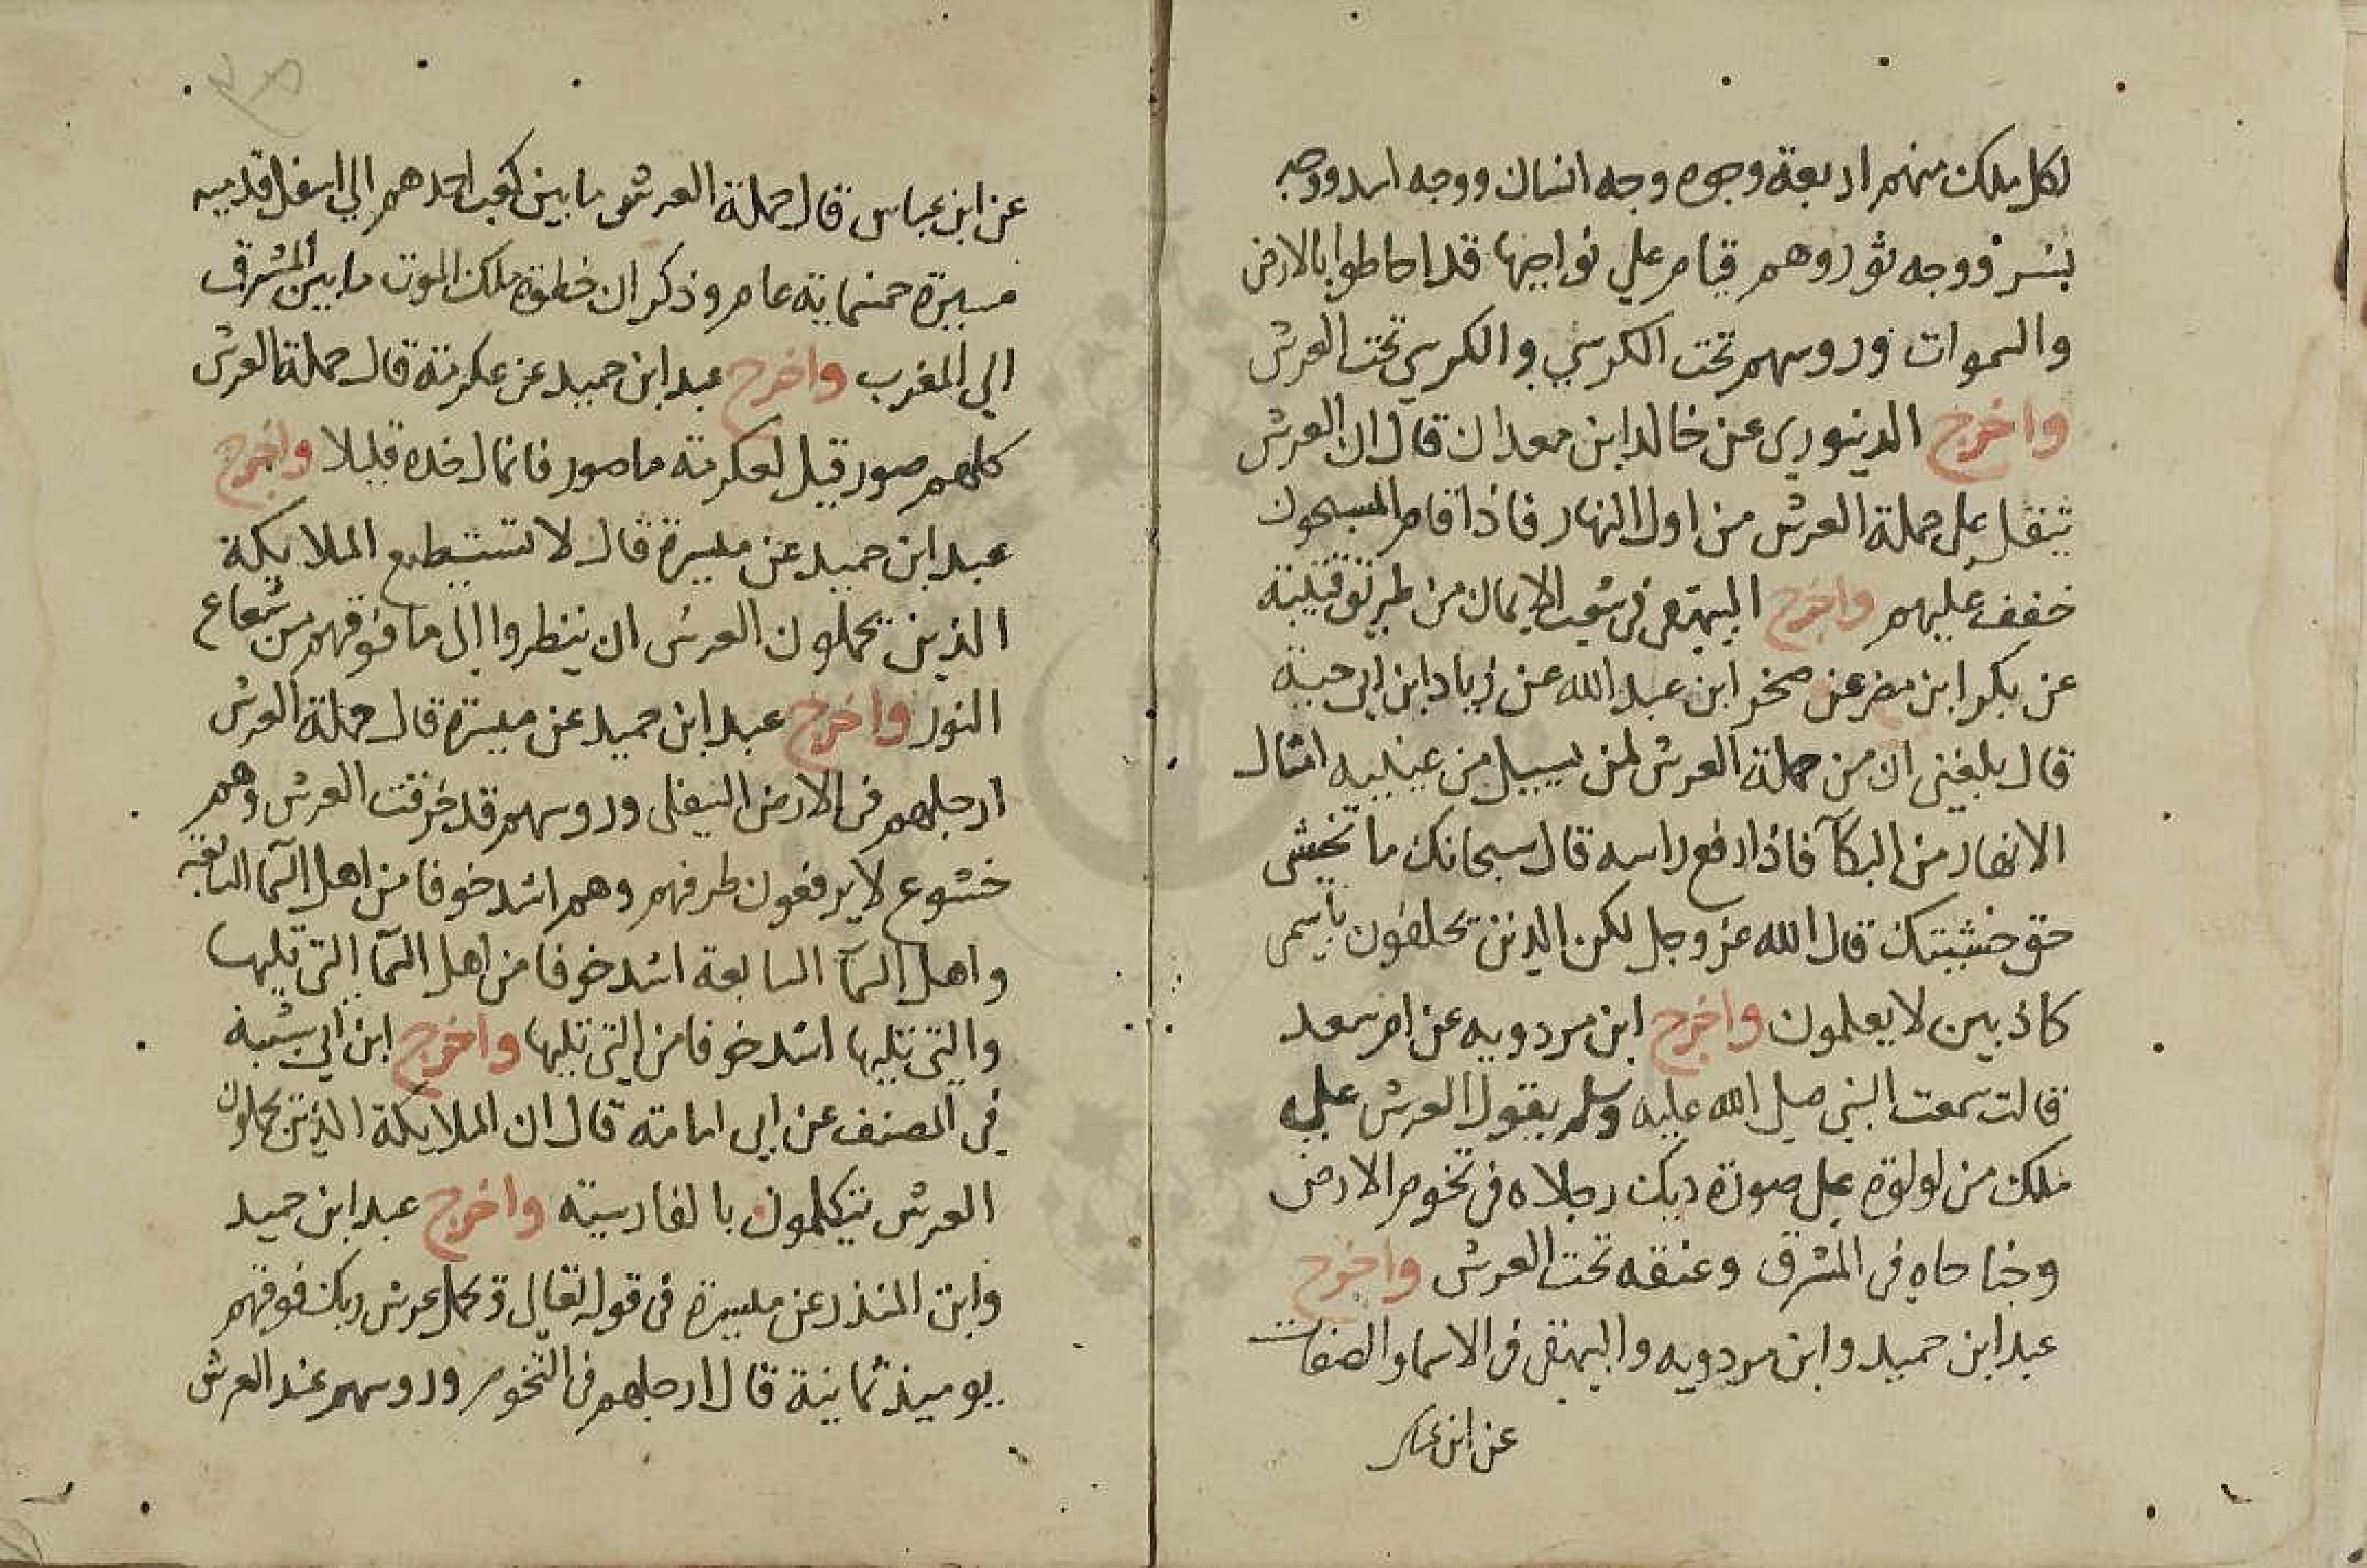 لكل ملك منهم اربعة وجوه وجه انسان ووجه اسد ووجه
نسر ووجه ثور وهم قيام علي نواحيها قد احاطوا بالارض
والسموات وروسهم تحت الكرسي والكرسي تحت العرش
واخرج الدينوري عن خالد ابن معدان قال ان العرش
يثقل علي حملة العرش من اول النهار فاذا قام المسبحون
خفف عليهم واخرج البيهقي في شعب الايمان من طريق قتيبة
عن بكر ابن مضر عن صخر ابن عبد الله عن زياد ابن ابي حية
قال بلغني ان من حملة العرش لمن يسيل من عينيه امثال
الانهار من البكآ فاذا رفع راسه قال سبحانك ما تخشي
حق خشيتك قال الله عز وجل لكن الذين يحلفون باسمي
كاذبين لا يعلمون واخرج ابن مردويه عن ام سعد
قالت سمعت النبي صلي الله عليه وسلم يقول العرش علي
ملك من لولوة علي صورة ديك رجلاه في تخوم الارض
وجناحاه في المشرق وعنقه تحت العرش واخرج
عبد ابن حميد وابن مردويه والبيهقي في الاسما والصفات
عن ابن
عن ابن عباس قال حملة العرش ما بين كعب احدهم الي اسفل قدميه
مسيرة خمسماية عام وذكر ان خطوة ملك الموت ما بين المشرق
الي المغرب واخرج عبد ابن حميد عن عكرمة قال حملة العرش
كلهم صور قيل لعكرمة ما صور فامال خده قليلا واخرج
عبد ابن حميد عن ميسرة قال لا تستطيع الملايكة
الذين يحملون العرش ان ينظروا الي ما فوقهم من شعاع
النور واخرج عبد ابن حميد عن ميسرة قال حملة العرش
ارجلهم في الارض السفلي وروسهم قد خرقت العرش وهم
خشوع لا يرفعون طرفهم وهم اشد خوفا من اهل السمآ السابعة
واهل السمآ السابعة اشد خوفا من اهل السمآ التي تليها
والتي تليها اشد خوفا من التي تليها واخرج ابن ابي شيبة
في المصنف عن ابي امامة قال ان الملايكة الذين يحملون
العرش يتكلمون بالفارسية واخرج عبد ابن حميد
وابن المنذر عن ميسرة في قوله تعالي ويحمل عرش ربك فوقهم
يوميذ ثمانية قال ارجلهم في التخوم وروسهم عند العرش